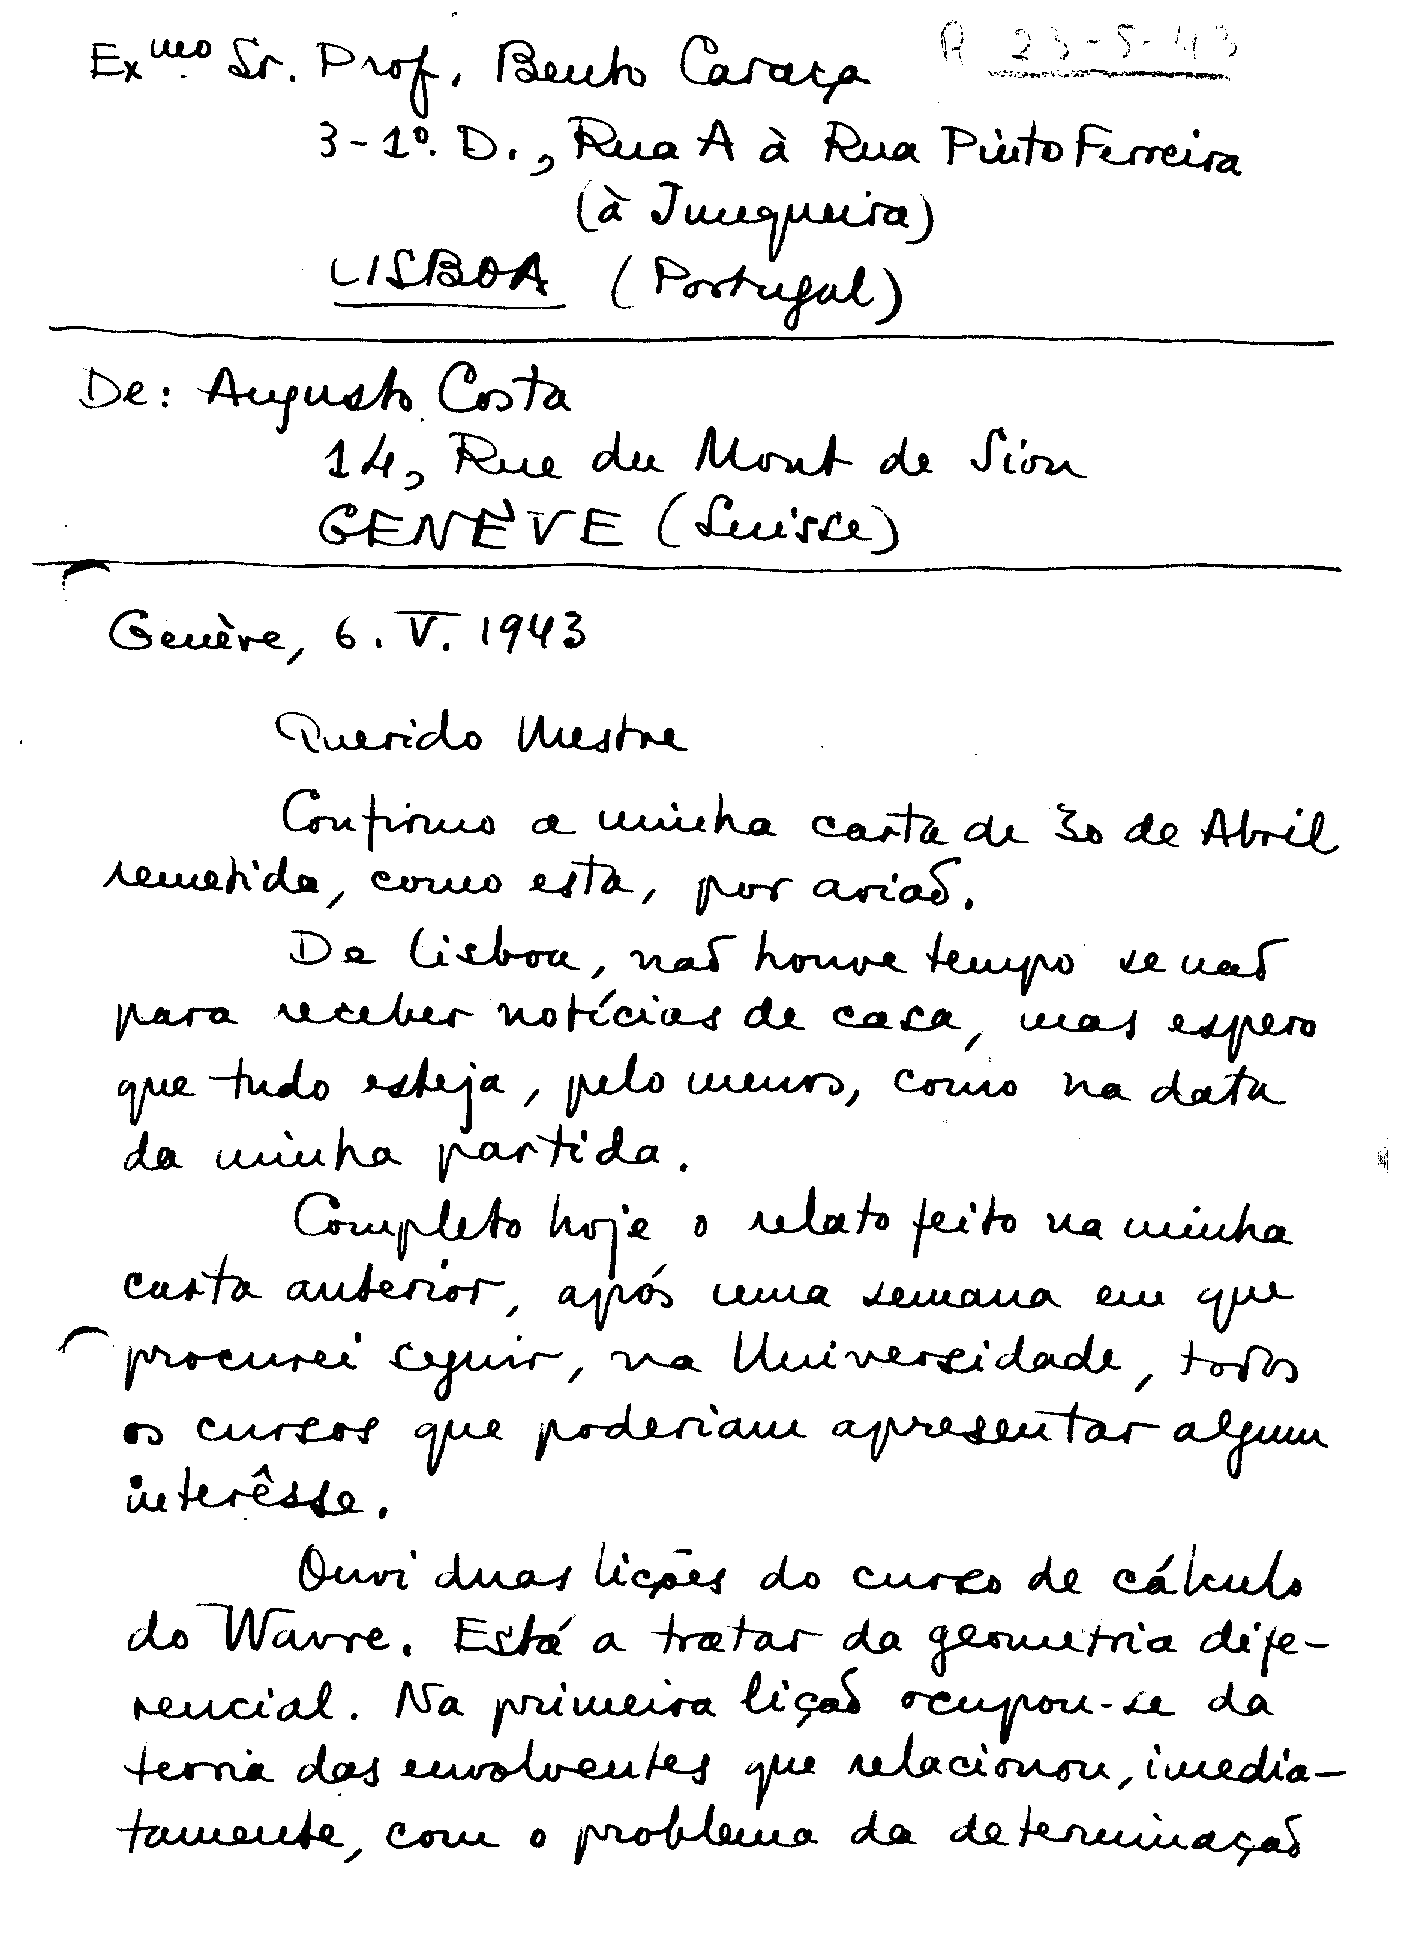 Exmo Sr. Prof. Bento Caraça
R 23-5-43
3-1º. D., Rua A à Rua Pinto Ferreira
(à Junqueira)
LISBOA (Portugal)
De: Augusto Costa
14, Rue du Mont de Sion
GENÈVE (Suisse)
Genève, 6. V. 1943
Querido Mestre
Confirmo a minha carta de 30 de Abril
remetida, como esta, por avião.
De Lisboa, não houve tempo senão
para receber notícias de casa, mas espero
que tudo esteja, pelo menos, como na data
da minha partida.
Completo hoje o relato feito na minha
carta anterior, após uma semana em que
procurei seguir, na Universidade, todos
os cursos que poderiam apresentar algum
interêsse.
Ouvi duas lições do curso de cálculo
do Wavre. Está a tratar da geometria dife-
rencial. Na primeira lição ocupou-se da
teoria das envolventes que relacionou, imedia-
tamente, com o problema da determinação